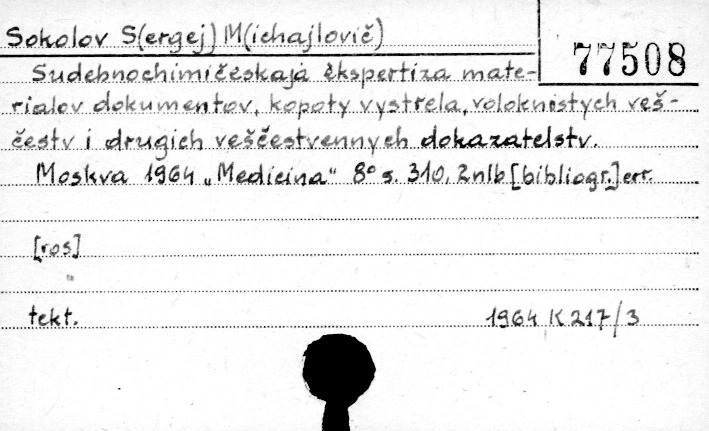 Sokolov S(ergej) M(ichajlovič)
77508
Sudebnochimičeskaja èkspertiza mate-
rialov dokumentov, kopoty vystrela, voloknistych veš-
čestv i drugich veščestvennych dokazatelstv.
Moskva 1964 „Medicina" 8° s. 310, 2nlb [bibliogr.] err.
[ros]
tekt. 1964 K 217/3